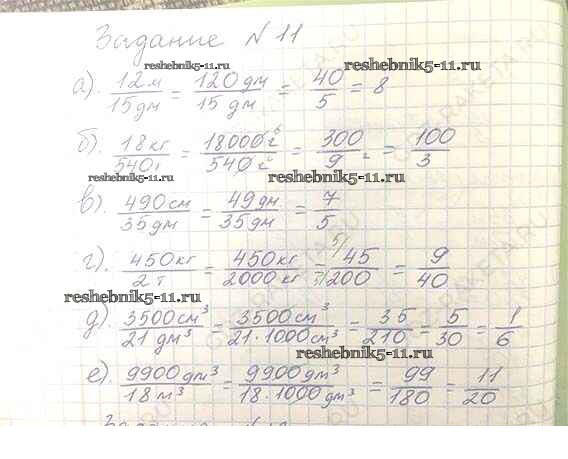 Задание №11
reshebnik5-11.ru reshebnik5-11.ru
а). 12м/15дм = 120дм/15дм = 40/5 = 8
reshebnik5-11.ru
б). 18кг/540г = 18000г/540г = 300/9 = 100/3
reshebnik5-11.ru reshebnik5-11.ru
в). 490см/35дм = 49дм/35дм = 7/5
г). 450кг/2т = 450кг/2000кг = 45/200 = 9/40
reshebnik5-11.ru reshebnik5-11.ru
д). 3500см³/21дм³ = 3500см³/21·1000см³ = 35/210 = 5/30 = 1/6
reshebnik5-11.ru
е). 9900дм³/18м³ = 9900дм³/18·1000дм³ = 99/180 = 11/20